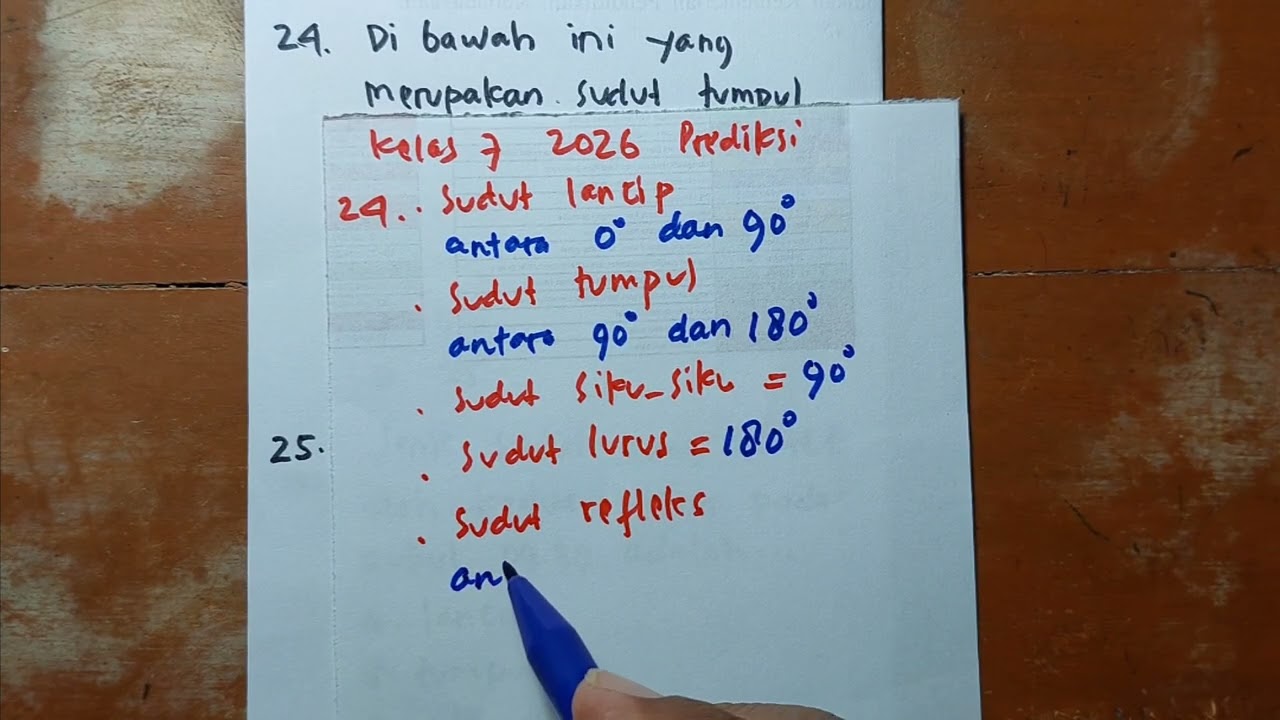 24. Di bawah ini yang
merupakan sudut tumpul
Kelas 7 2026 Prediksi
24. . Sudut lancip
antara 0° dan 90°
. Sudut tumpul
antara 90° dan 180°
. Sudut siku-siku = 90°
25.
. Sudut lurus = 180°
. Sudut refleks
an